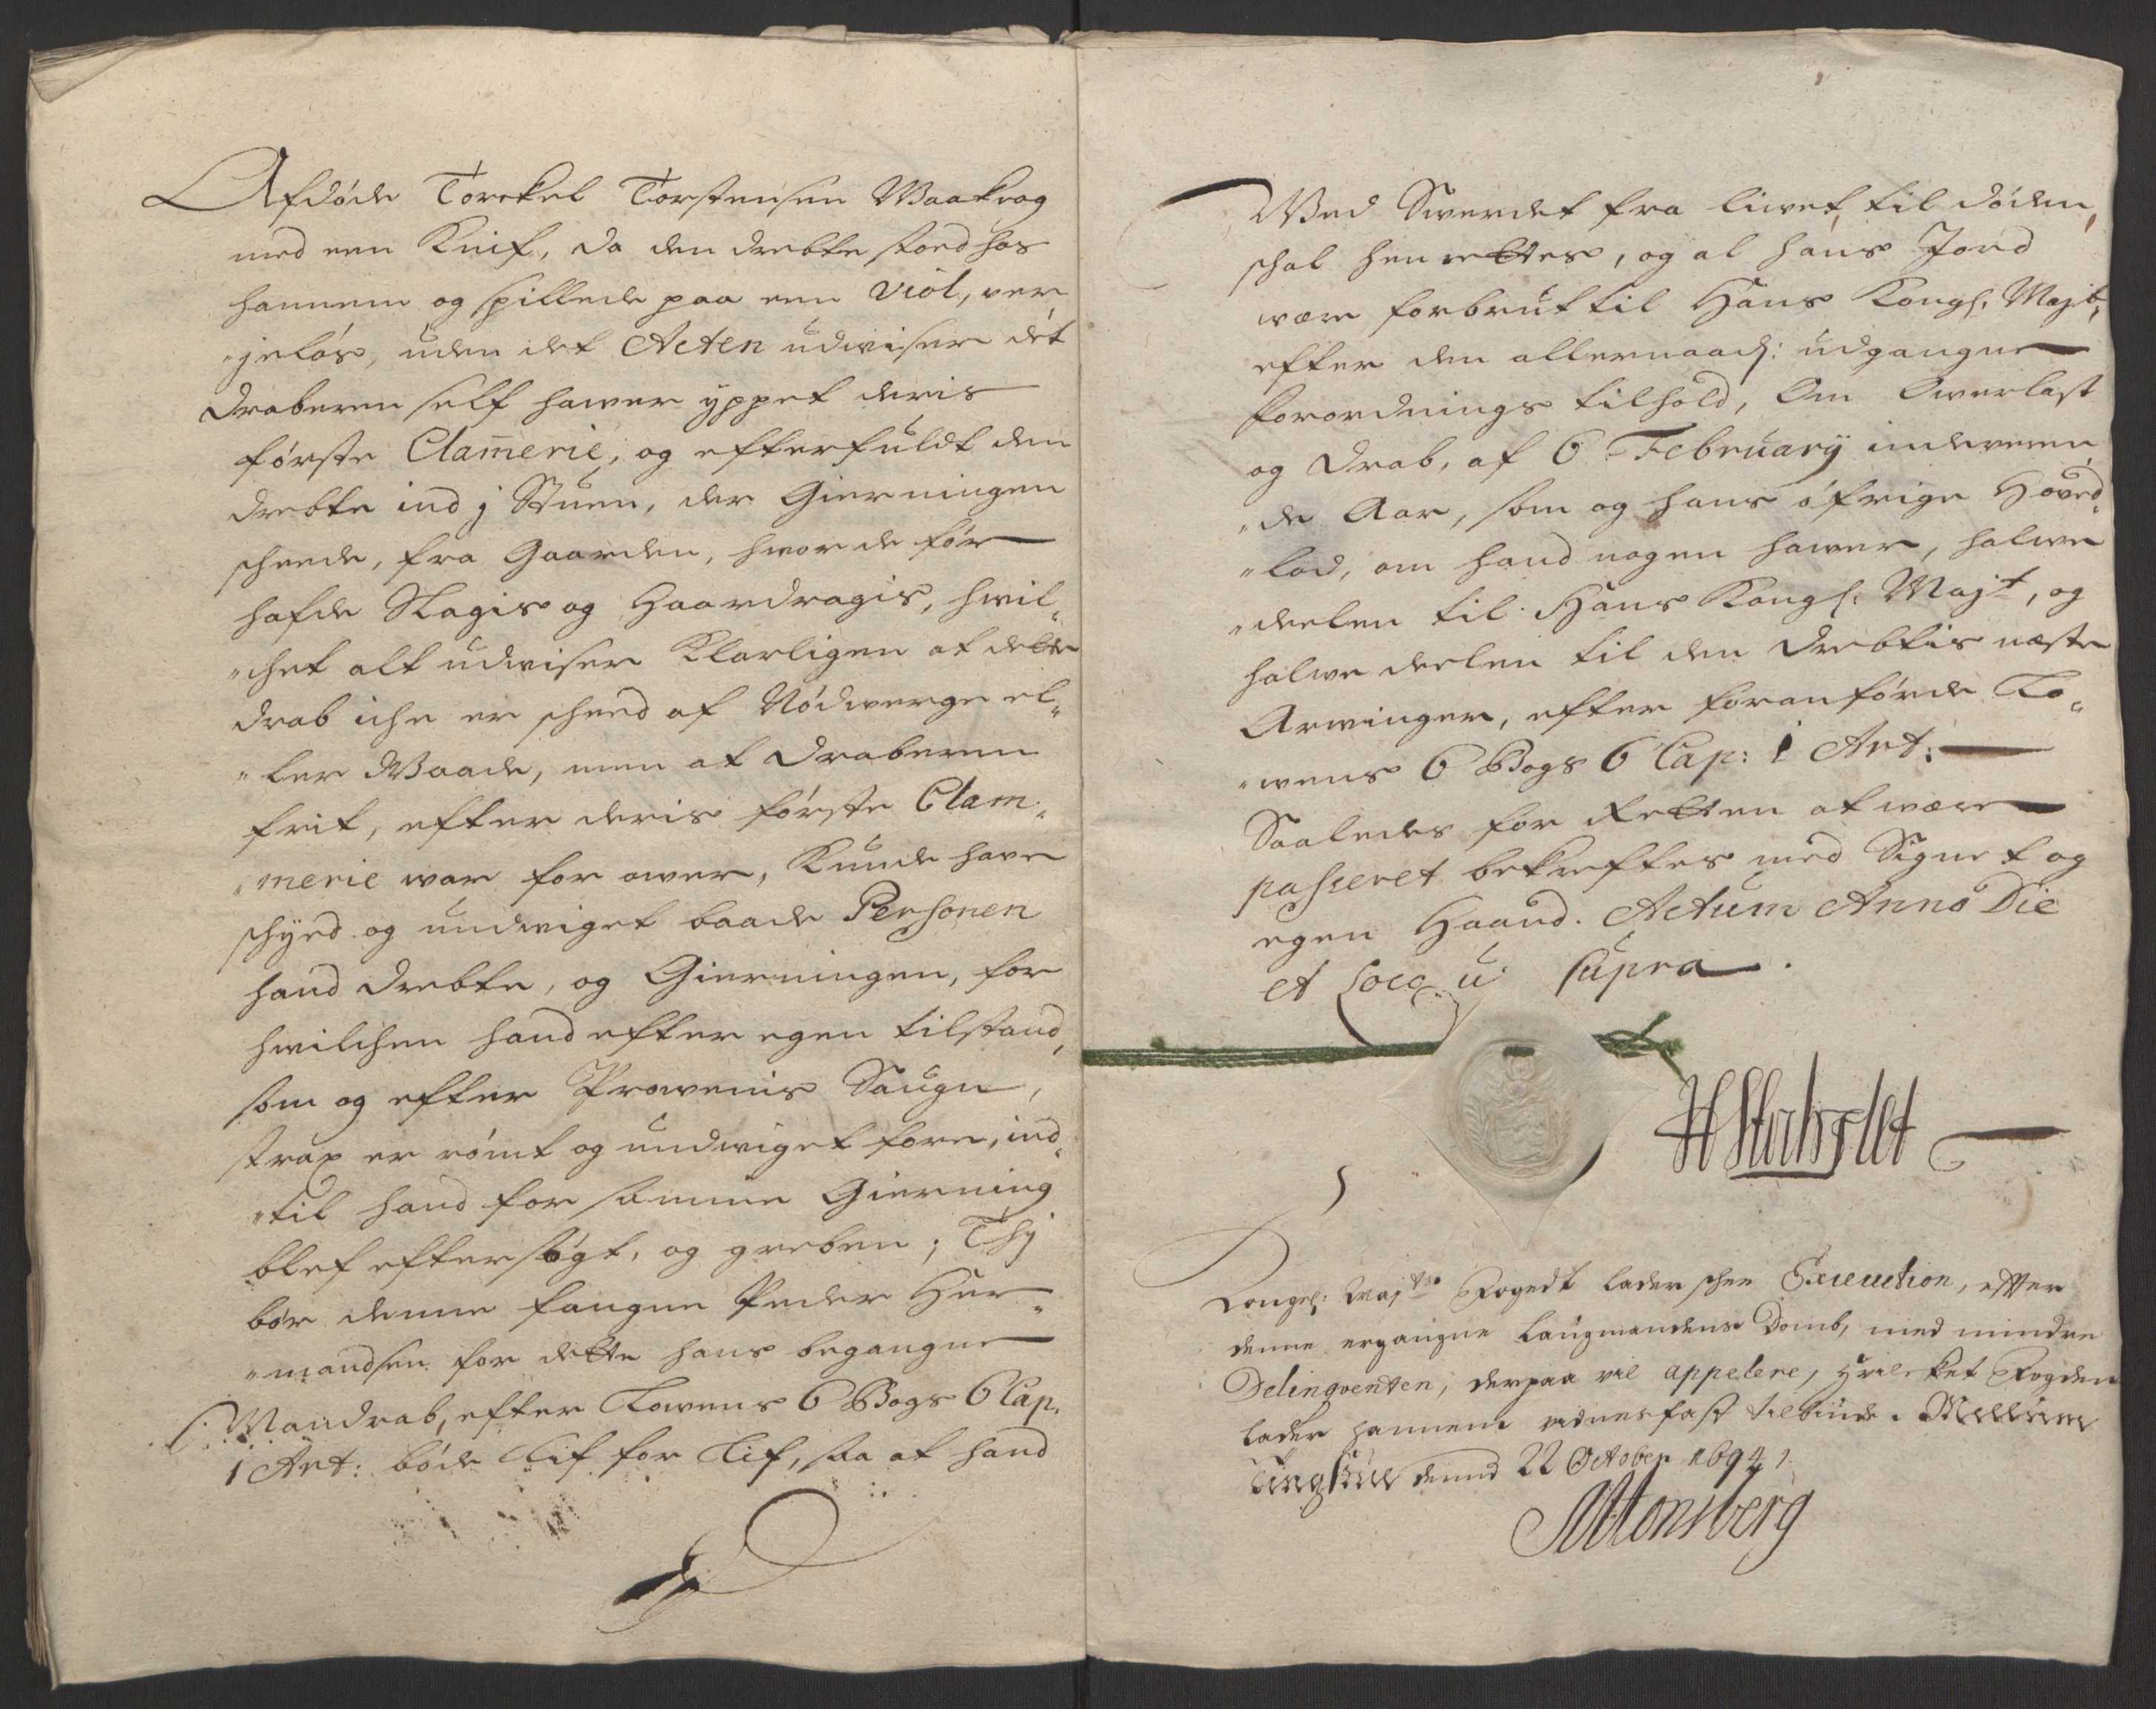 Afdöde Torckel Torstensen Waakrog
med een Knif, da den drebte stoed hos
hannem og spillede paa een Viol, ver
"jelös, uden det Acten udwiser det
Draberen self hawer yppet deris
förste Clam̄erie, og efterfuldt den
drebte ind j Stuen, der Gierningen
scheede, fra Gaarden, hvor de för
hafde Slagis og Haardragis, hwil„
"chet alt udwiser Klarligen at dette
drab iche er scheed af Nödwerge el„
"ler Waade, men at Draberen
frit, efter deris förste Clam„
"merie war for ower, Kunde have
schyed og undwiget baade Personen
hand drebte, og Gierningen, for
hwilchen hand efter egen tilstand,
som og efter Prowenis Saugn,
strax er römt og undwiget fore, ind„
"til hand for samme Gierning
blef eftersögt, og greben; Thj
bör denne fangne Peder Her„
"mandsen for dette hans begangne
Mandrab, efter Lowens 6 Bogs 6 Cap.
1 Art: böde Lif for Lif, saa at hand
Wed Swerdet fra liwet til döden,
schal henrettes, og al hans Jord
være forbrut til Hans Kongl. Majt,
efter den allernaad: udgangne
forordnings tilhold, Om Owerlast
og Drab, af 6 February indeweren„
"de Aar, som og hans öfrige Hoved„
"lod, om hand nogen hawer, halwe
"deelen til Hans Kongl. Majt, og
halwe deelen til den drebtis næste
Arwinger, efter foranförde Lo„
"wens 6 Bogs 6 Cap: 1 Art:
Saaledes for Retten at være
passeret bekreftes med Signet og
egen Haand. Actum Anno Die
et Loco u. supra.
Kongel: Maj:ts Fogedt lader schee Execution, efter
denne ergangne Laugmandens Domb, med mindre
Delinqventen, derpaa vil appelere, hvilcket Fogden
lader hannem vidnesfast tilbiude.
Tingstue dend 22 October 1694